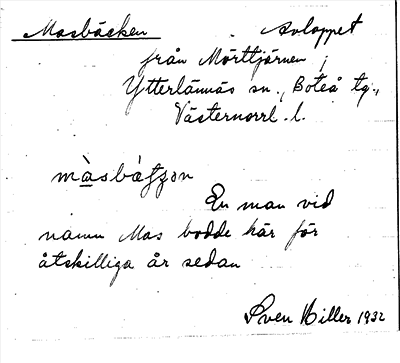 Masbäcken Avloppet
från Mörttjärnen,
Ytterlännäs sn., Boteå tg.,
Västernorrl. l.
En man vid
namn Mas bodde här för
åtskilliga år sedan
Sven Hiller 1932